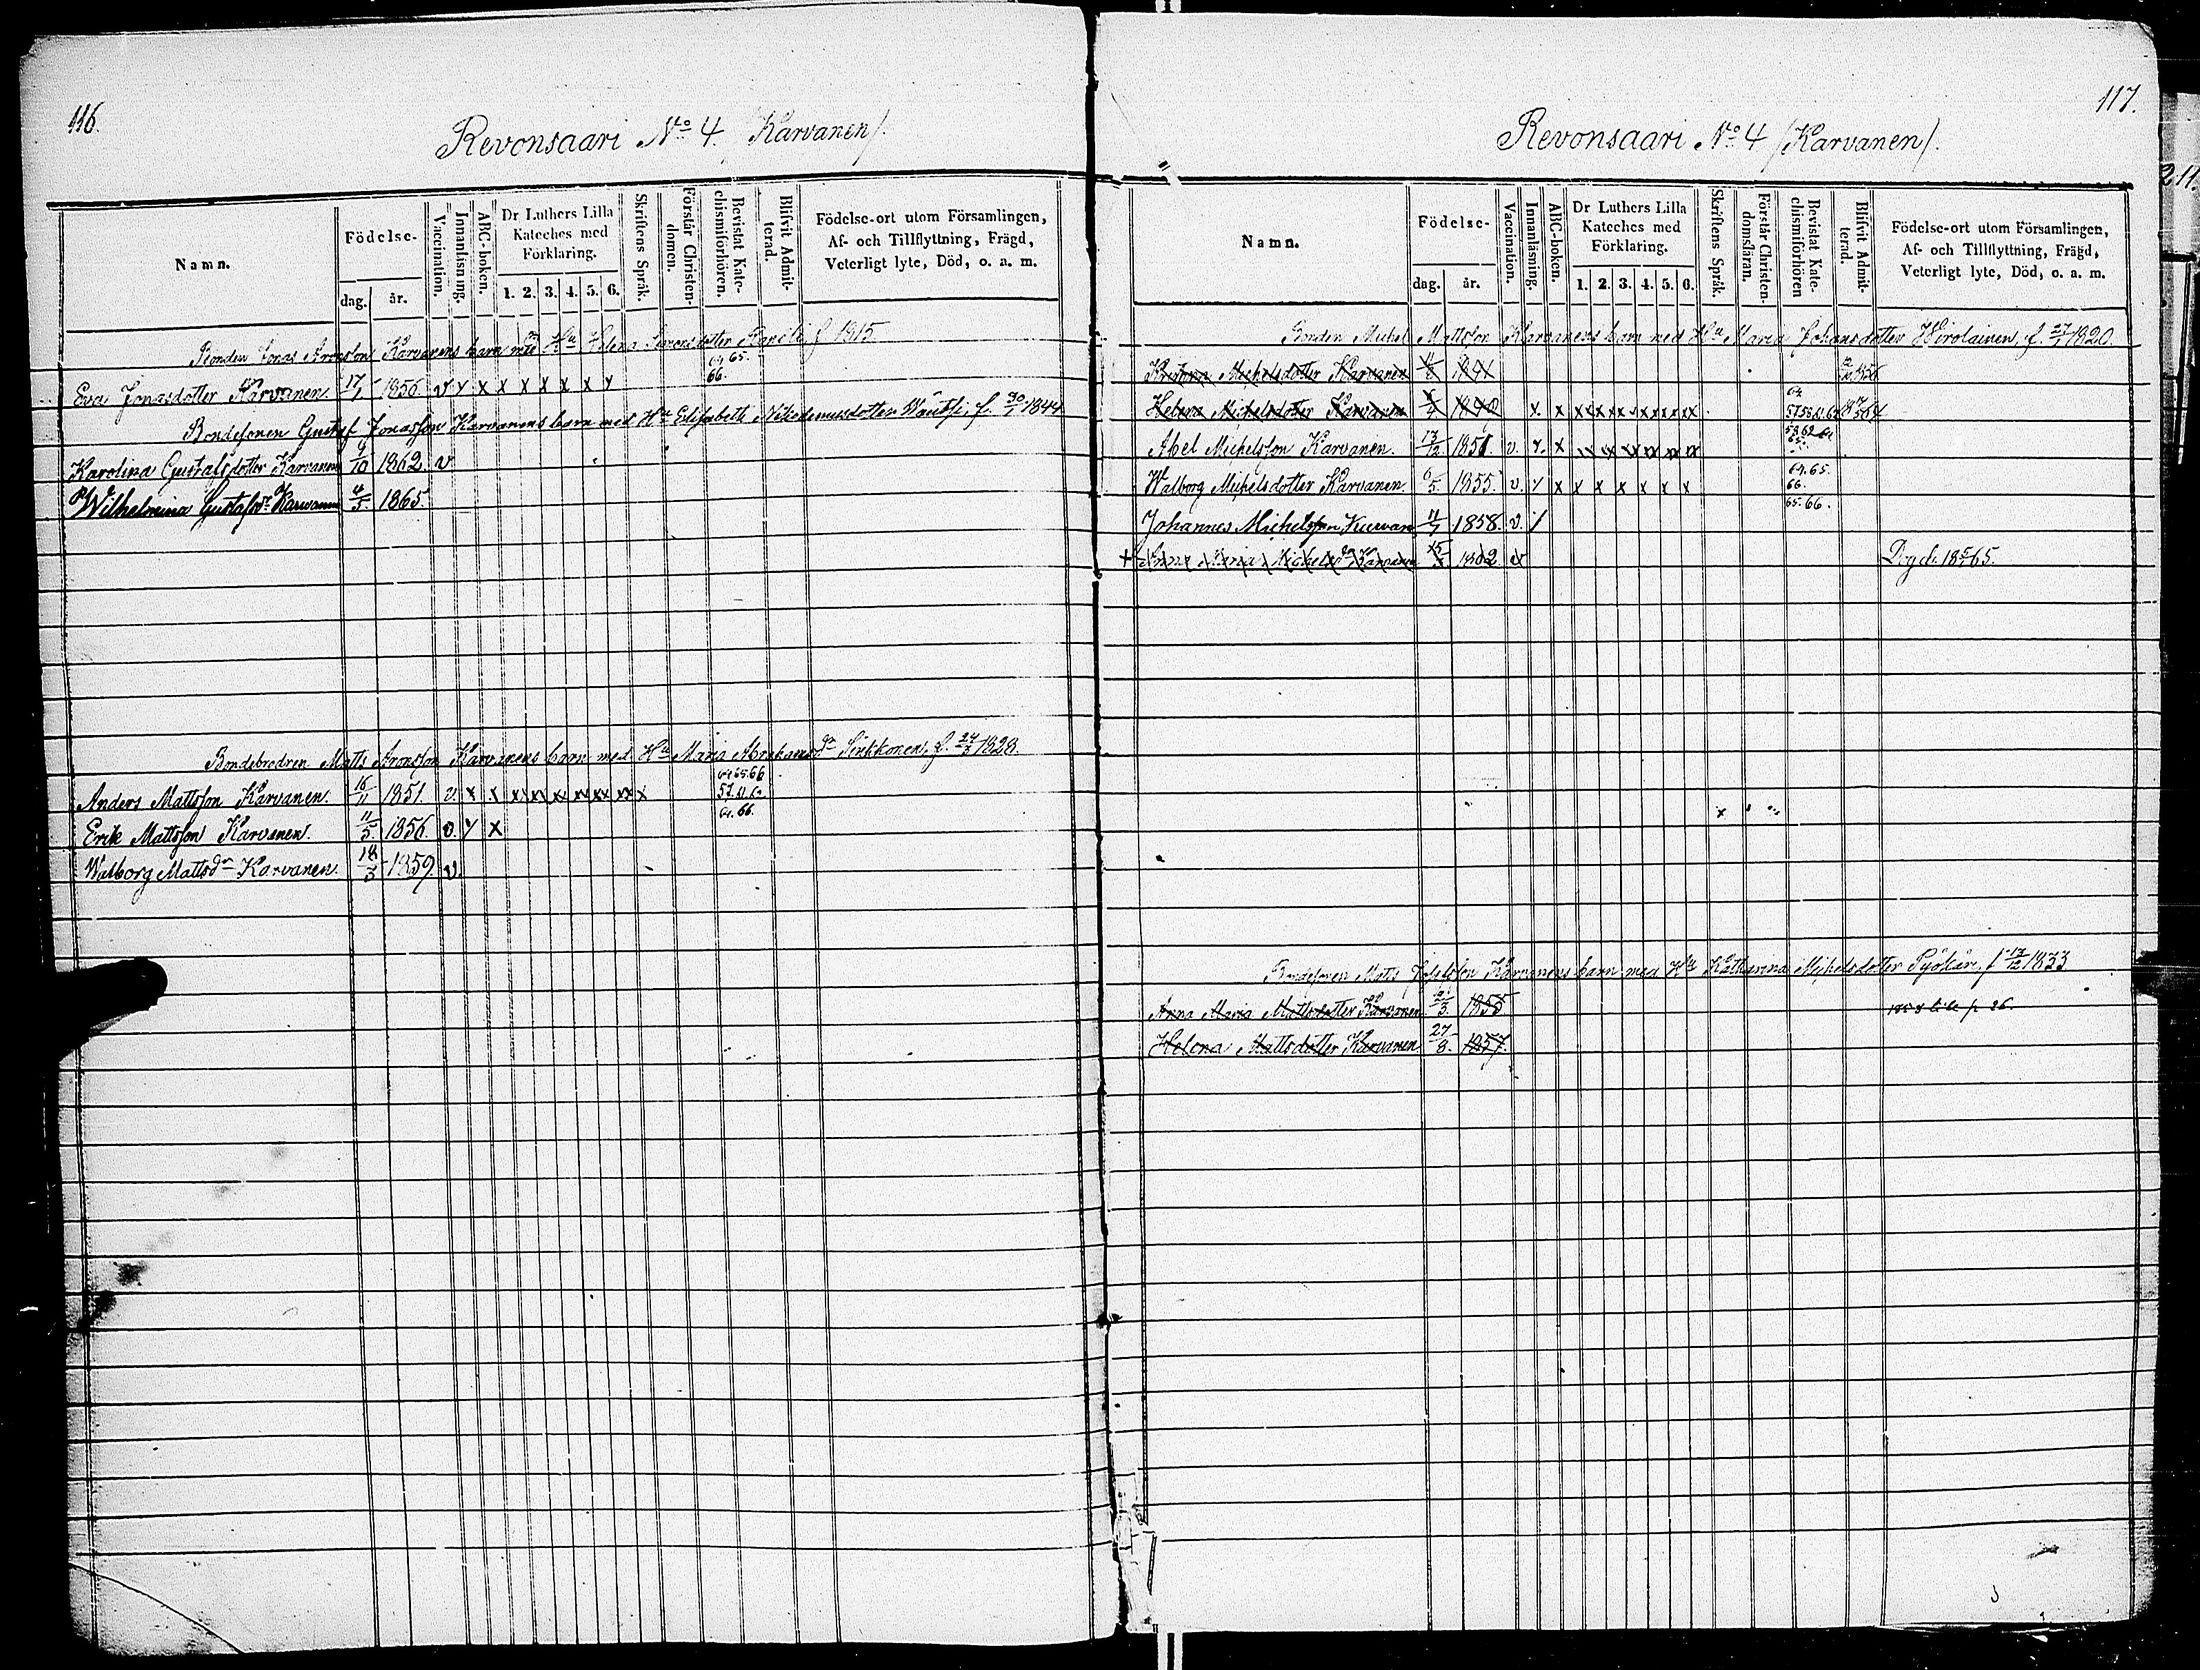 116.
Revonsaari No 4. Karvanen/.
Namn.
Födelse-
dag.
år.
Vaccination.
Innanläsning.
ABC-boken.
Dr Luthers Lilla
Kateches med
Förklaring.
1. 2. 3. 4. 5. 6.
Skriftens Språk.
Förstår Christen-
domen.
Bevistat Kate-
chismiförhören.
Blifvit Admit-
terad.
Födelse-ort utom Församlingen,
Af- och Tillflyttning, Frägd,
Veterligt lyte, Död, o. a. m.
Bonden Jonas Aronsson Karvanens barn med Hu Helena f. 1815
64 65.
Eva Jonasdotter Karvanen. 17/1 1856. v y x x x x x x y 66.
Bondesonen Gustaf Jonasson Karvanens barn med Hu Elisabeth Nikodemusdotter f. 30/1 1844
Karolina Gustafsdotter Karvanen 9/10 1862 v
Wilhelmina Gustafsdr Karvanen 4/5 1865.
Bondebrodren Matts Aronsson Karvanens barn med Hu Maria Abrahamsdr Sinkkonen, f. 24/3 1828.
64 65 66
Anders Mattsson Karvanen. 16/11 1851. v. x x xx xx xx xx xx xx x 57. 61. 62
Erik Mattsson Karvanen. 11/5 1856. v y x 64. 66.
Walborg Mattsdr Karvanen. 18/3 1859. v.
117.
Revonsaari No 4 /Karvanen/.
Namn.
Födelse-
dag.
år.
Vaccination.
Innanläsning.
ABC-boken.
Dr Luthers Lilla
Kateches med
Förklaring.
1. 2. 3. 4. 5. 6.
Skriftens Språk.
Förstår Christen-
domsläran.
Bevistat Kate-
chismiförhören
Blifvit Admit-
terad.
Födelse-ort utom Församlingen,
Af- och Tillflyttning, Frägd,
Veterligt lyte, Död, o. a. m.
Bonden Michel Mattsson Karvanens barn med Hu Maria Johansdotter Hirolainen, f. 27/1 1820.
Michelsdotter Karvanen 1841
Helena Michelsdotter Karvanen 1840 x. x xx xx xx xx xx xx
Abel Michelsson Karvanen. 13/12 1851 v. y. x xx xx xx xx xx xx
64. 65.
Walborg Michelsdotter Karvanen. 6/5 1855. v. y x x x x x x x 66.
Johannes Michelsson Kurvan 11/7 1858. v. / 65. 66.
+ Anna Maria Michelsdr Karvanen 15/ 1862 v Dog d. 18 5/ 65.
Bondesonen Matts Josefsson Karvanens barn med Hu Katharina Michelsdotter Pyökär, f 17/12 1833
Anna Maria Mattsdotter Karvanen 1855 p 26.
Helena Mattsdotter Karvanen 27/8. 1857.
211.